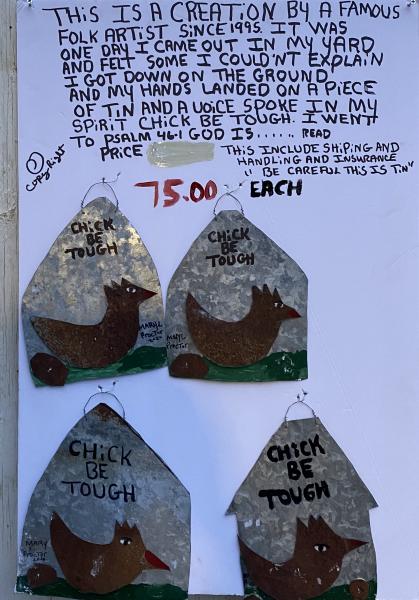 THIS IS A CREATION BY A FAMOUS
FOLK ARTIST SINCE 1995. IT WAS
ONE DAY I CAME OUT IN MY YARD
AND FELT SOME I COULD'NT EXPLAIN
I GOT DOWN ON THE GROUND
AND MY HANDS LANDED ON A PIECE
OF TIN AND A VOICE SPOKE IN MY
SPIRIT CHICK BE TOUGH. I WENT
TO PSALM 46-1 GOD IS...... READ
PRICE THIS INCLUDE SHIPING AND
HANDLING AND INSURANCE
" BE CAREFUL THIS IS TIN"
COPYRIGHT
75.00 EACH
CHICK
BE
TOUGH
MARY
PROCTOR
CHICK
BE
TOUGH
MARY
PROCTOR
CHICK
BE
TOUGH
MARY
PROCTOR
CHICK
BE
TOUGH